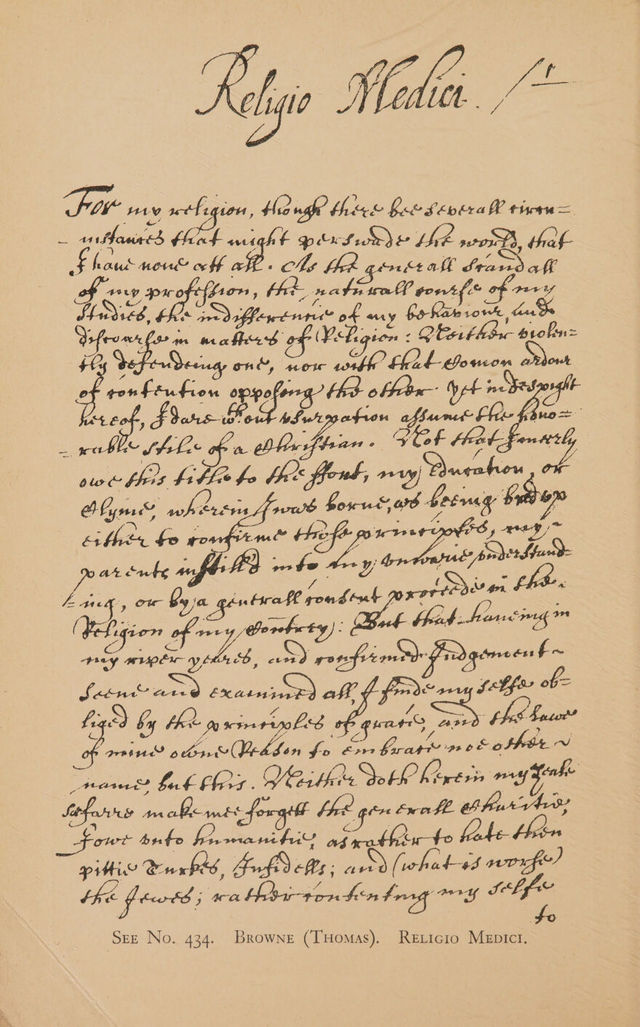 Religio Medici. 1r
For my religion, though there bee severall circu-
-mstances that might perswade the world, that
I have none att all. As the generall scandall
of my profession, the naturall course of my
studies, the indifferencie of my behaviour, and
discourse in matters of Religion: Neither violen-
tly defendeing one, nor with that Comon ardour
of contention opposing the other. Yet in despight
hereof, I dare wthout usurpation assume the hono-
-rable stile of a Christian. Not that I meerly
owe this title to the ffont, my Education, or
Clyme, wherein I was borne, as beeing bred up
either to confirme those principles, my
parents instill'd into my unwarie understand-
-ing, or by a generall consent proceede in the
Religion of my Contrey: But that haveing in
my riper yeares, and confirmed Judgement
Seene and examined all, I finde my selfe ob-
liged by the principles of grace, and the Lawe
of mine owne Reason to embrace noe other
name, but this. Neither doth herein my zeale
soe farre make mee forgett the generall Charitie,
I owe unto humanitie, as rather to hate then
pittie Turkes, Infidells; and (what is worse)
the Jewes; rather contenting my selfe
to
See No. 434. Browne (Thomas). Religio Medici.